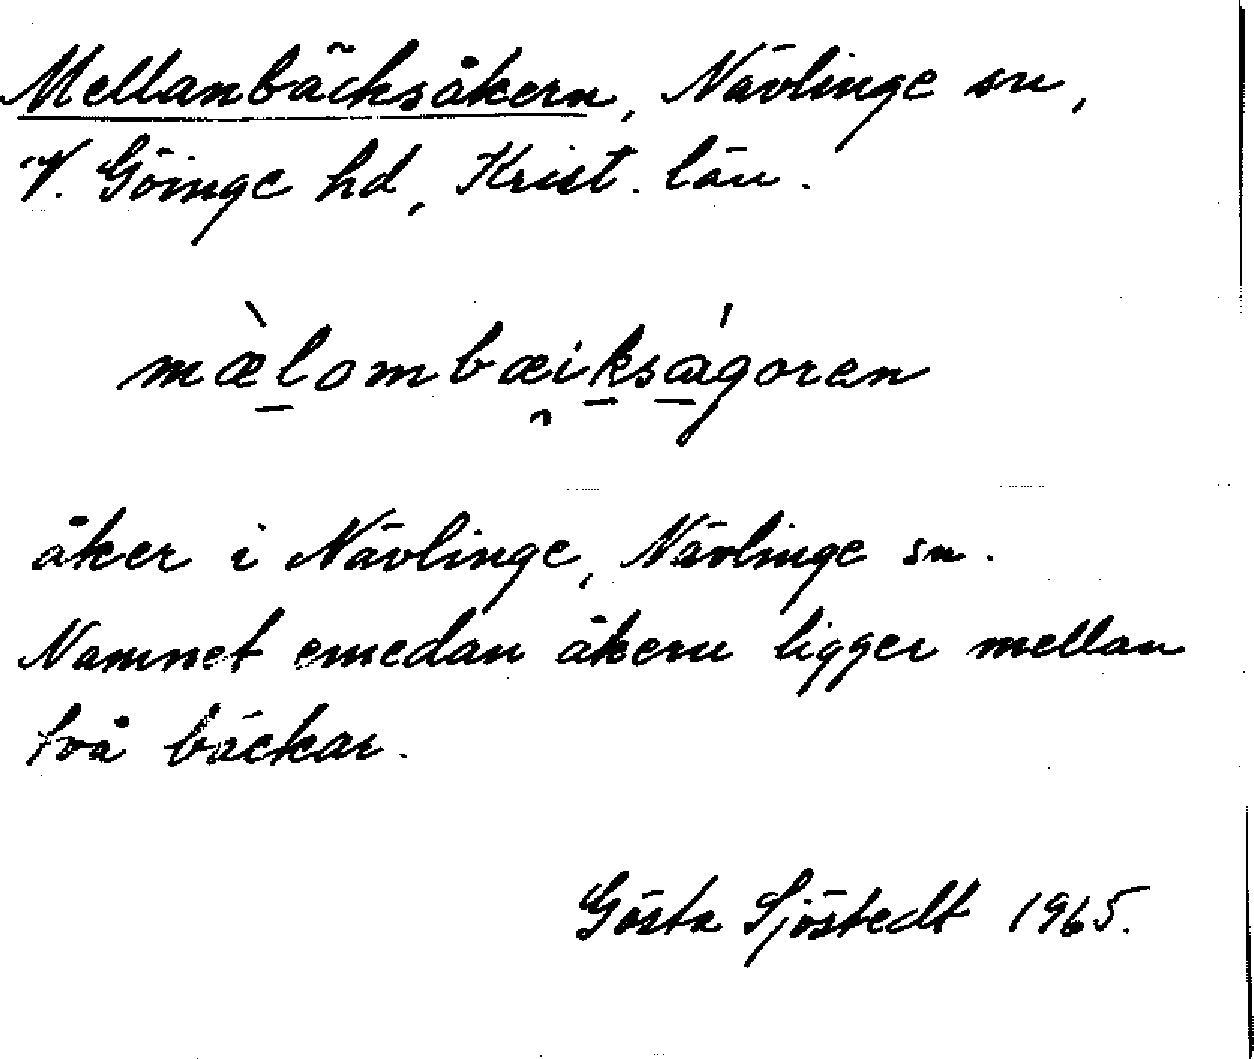 Mellanbäcksåkern, Nävlinge sn,
V. Göinge hd, Krist. län.
mæ̀lombæi̯kságoren
åker i Nävlinge, Nävlinge sn.
Namnet emedan åkern ligger mellan
två bäckar.
Gösta Sjöstedt 1965.